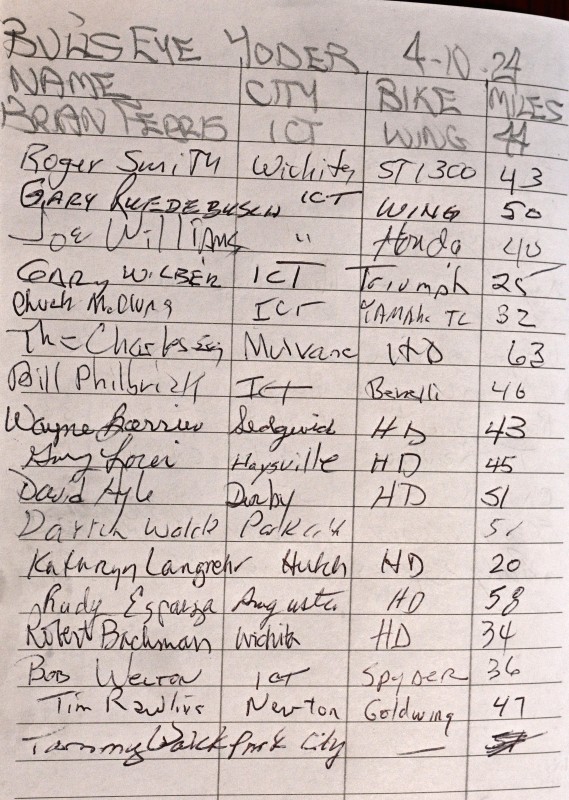 BULLS EYE YODER 4-10-24
NAME CITY BIKE MILES
BRIAN FERRIS ICT WING 44
Roger Smith Wichita ST1300 43
GARY RUEDEBUSCH ICT WING 50
Joe Williams " Honda 40
GARY WILBER ICT Triumph 25
Chuck McClung ICT YAMAha TC 32
The Charles Mulvane HD 63
Bill Philbrick ICT Benelli 46
Wayne Sedgwick HD 43
Haysville HD 45
David Derby HD 51
Park City
Kathryn Langrehr Hutch HD 20
Rudy Esparza Augusta HD 58
Robert Bachman Wichita HD 34
Bob Welton ICT SPYDER 36
Tim Rawlins Newton Goldwing 47
Tammy Park City —